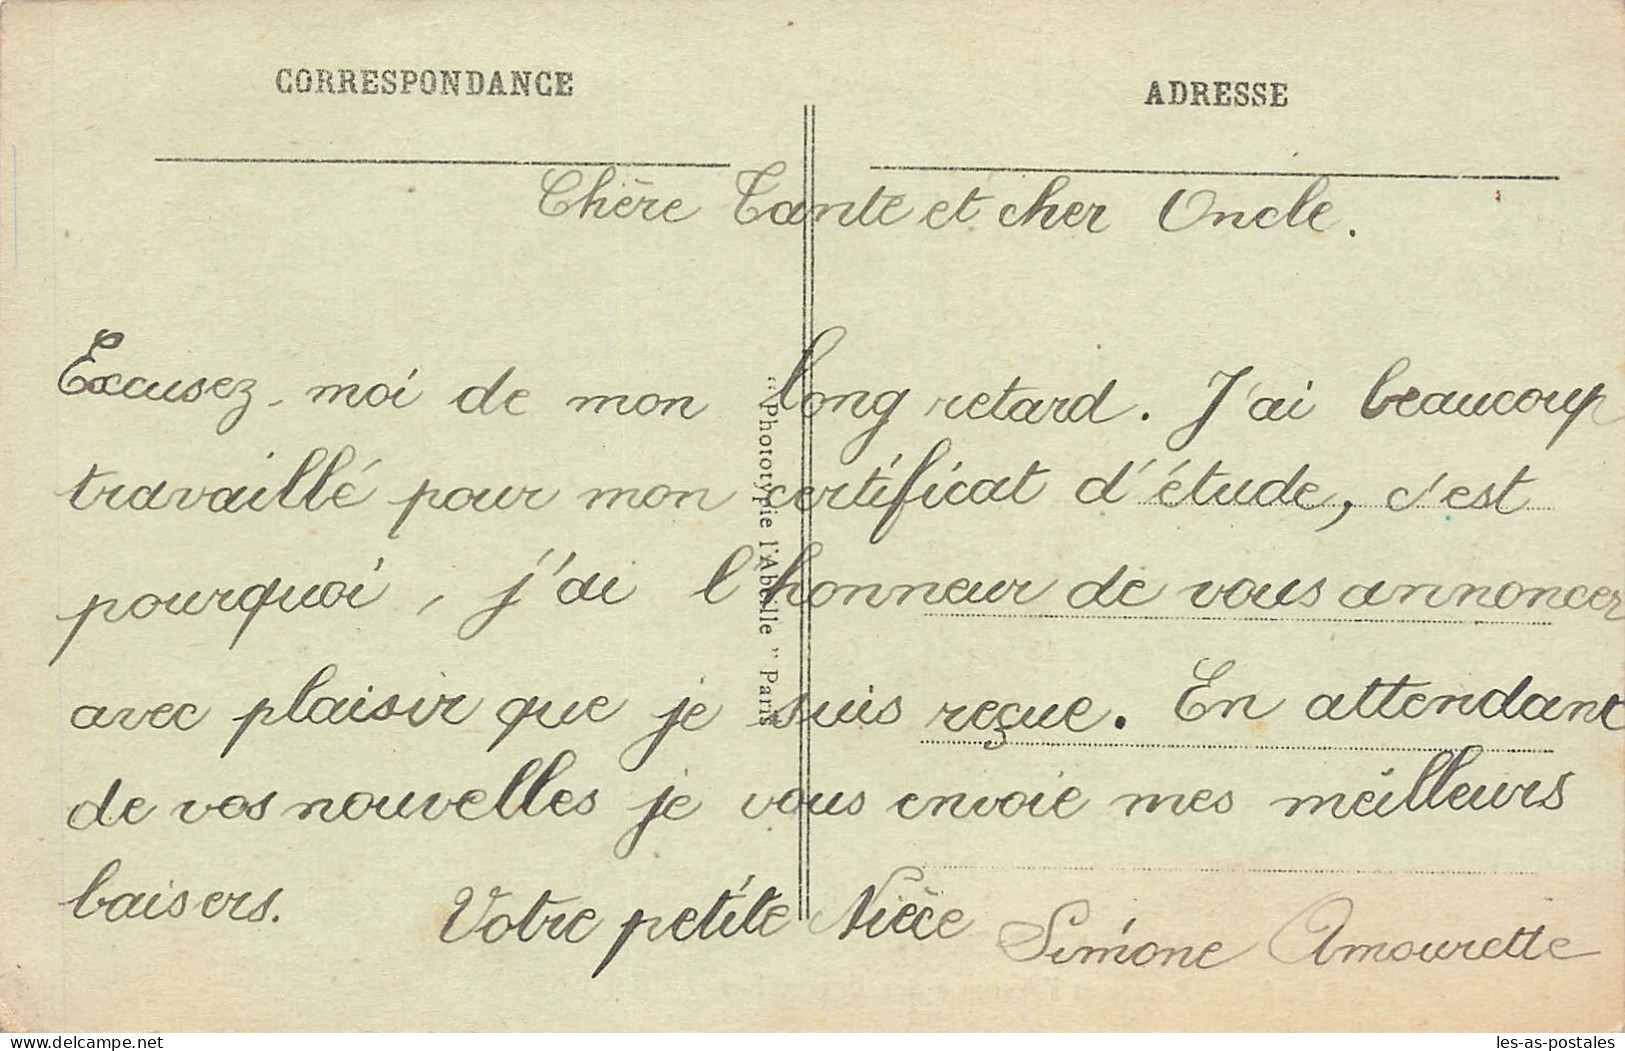 CORRESPONDANCE
ADRESSE
Chère Tante et cher Oncle.
Excusez-moi de mon long retard. J'ai beaucoup
travaillé pour mon certificat d'étude, c'est
pourquoi, j'ai l'honneur de vous annoncer
avec plaisir que je suis reçue. En attendant
de vos nouvelles je vous envoie mes meilleurs
baisers. Votre petite Nièce Simone Amourette
"Phototypie l'Abeille" Paris
delcampe.net
les-as-postales